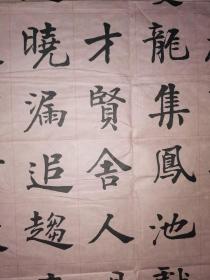 龍集鳳池
才賢舍人
曉漏追趨